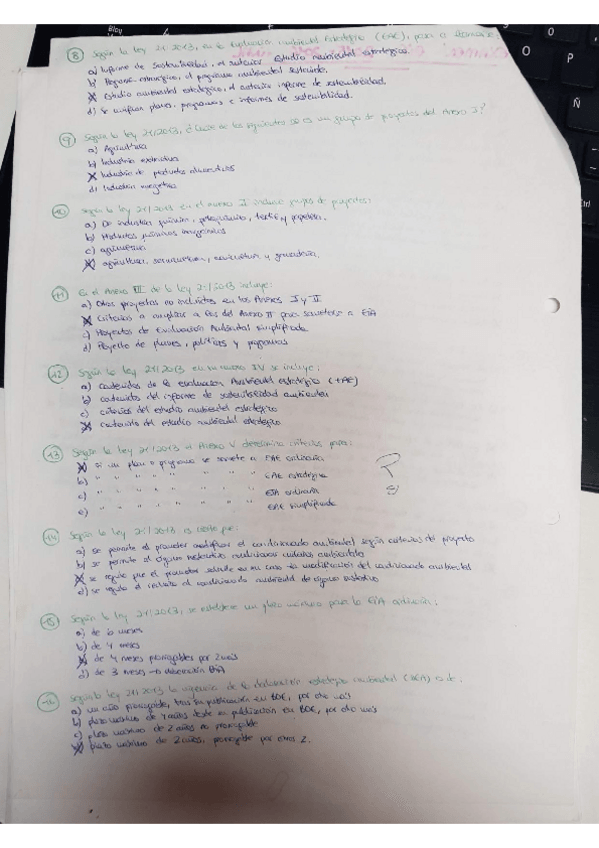 8 Según la Ley 21/2013, en la Evaluación ambiental estratégica (EAE), pasa a llamarse:
a) Informe de sostenibilidad, el anterior Estudio ambiental estratégico.
b) estratégico, el programa ambiental sostenible.
c) Estudio ambiental estratégico, el anterior informe de sostenibilidad.
d) Se unifican planes, programas e informes de sostenibilidad.
9 Según la Ley 21/2013, ¿Cuál de los siguientes no es un grupo de proyectos del Anexo I?
a) Agricultura
b) Industria extractiva
c) Industria de productos alimenticios
d) Industria energética
10 Según la Ley 21/2013 en el anexo I incluye grupos de proyectos:
a) De industrias química, petroquímica, textil y papelera.
b) Productos químicos inorgánicos
c) agricultura
d) agricultura, silvicultura, acuicultura y ganadería.
11 En el Anexo III de la Ley 21/2013 incluye:
a) Otros proyectos no incluidos en los Anexos I y II
b) Criterios a del Anexo II para someterse a EIA
c) Proyectos de Evaluación Ambiental simplificada
d) Proyecto de planes, políticas y programas
12 Según la Ley 21/2013 en su anexo IV se incluye:
a) contenidos de la evaluación Ambiental estratégica (EAE)
b) contenidos del informe de sostenibilidad ambiental
c) criterios del estudio ambiental estratégico
d) contenido del estudio ambiental estratégico
13 Según la Ley 21/2013 el Anexo V determina criterios para:
a) si un plan o programa se somete a EAE ordinaria
b) " " " " " " " EAE estratégica
c) " " " " " " " EIA ordinaria
d) " " " " " " " EAE simplificada
14 Según la Ley 21/2013 es cierto que:
a) se permite al promotor modificar el condicionado ambiental según criterios del proyecto
b) se permite al órgano sustantivo ambientales
c) se regula que el promotor solicite en su caso la modificación del condicionado ambiental
d) se regula el al condicionado ambiental de órgano sustantivo
15 Según la Ley 21/2013, se establece un plazo máximo para la EIA ordinaria:
a) de 6 meses
b) de 4 meses
c) de 4 meses prorrogables por 2 más
d) de 3 meses → EIA
16 Según la Ley 21/2013 la vigencia de la declaración estratégica ambiental es de:
a) un año prorrogable, tras su publicación en BOE, por otro más
b) plazo máximo de 4 años desde su publicación en BOE, por otro más
c) plazo máximo de 2 años no prorrogable
d) plazo máximo de 2 años, prorrogable por otros 2.